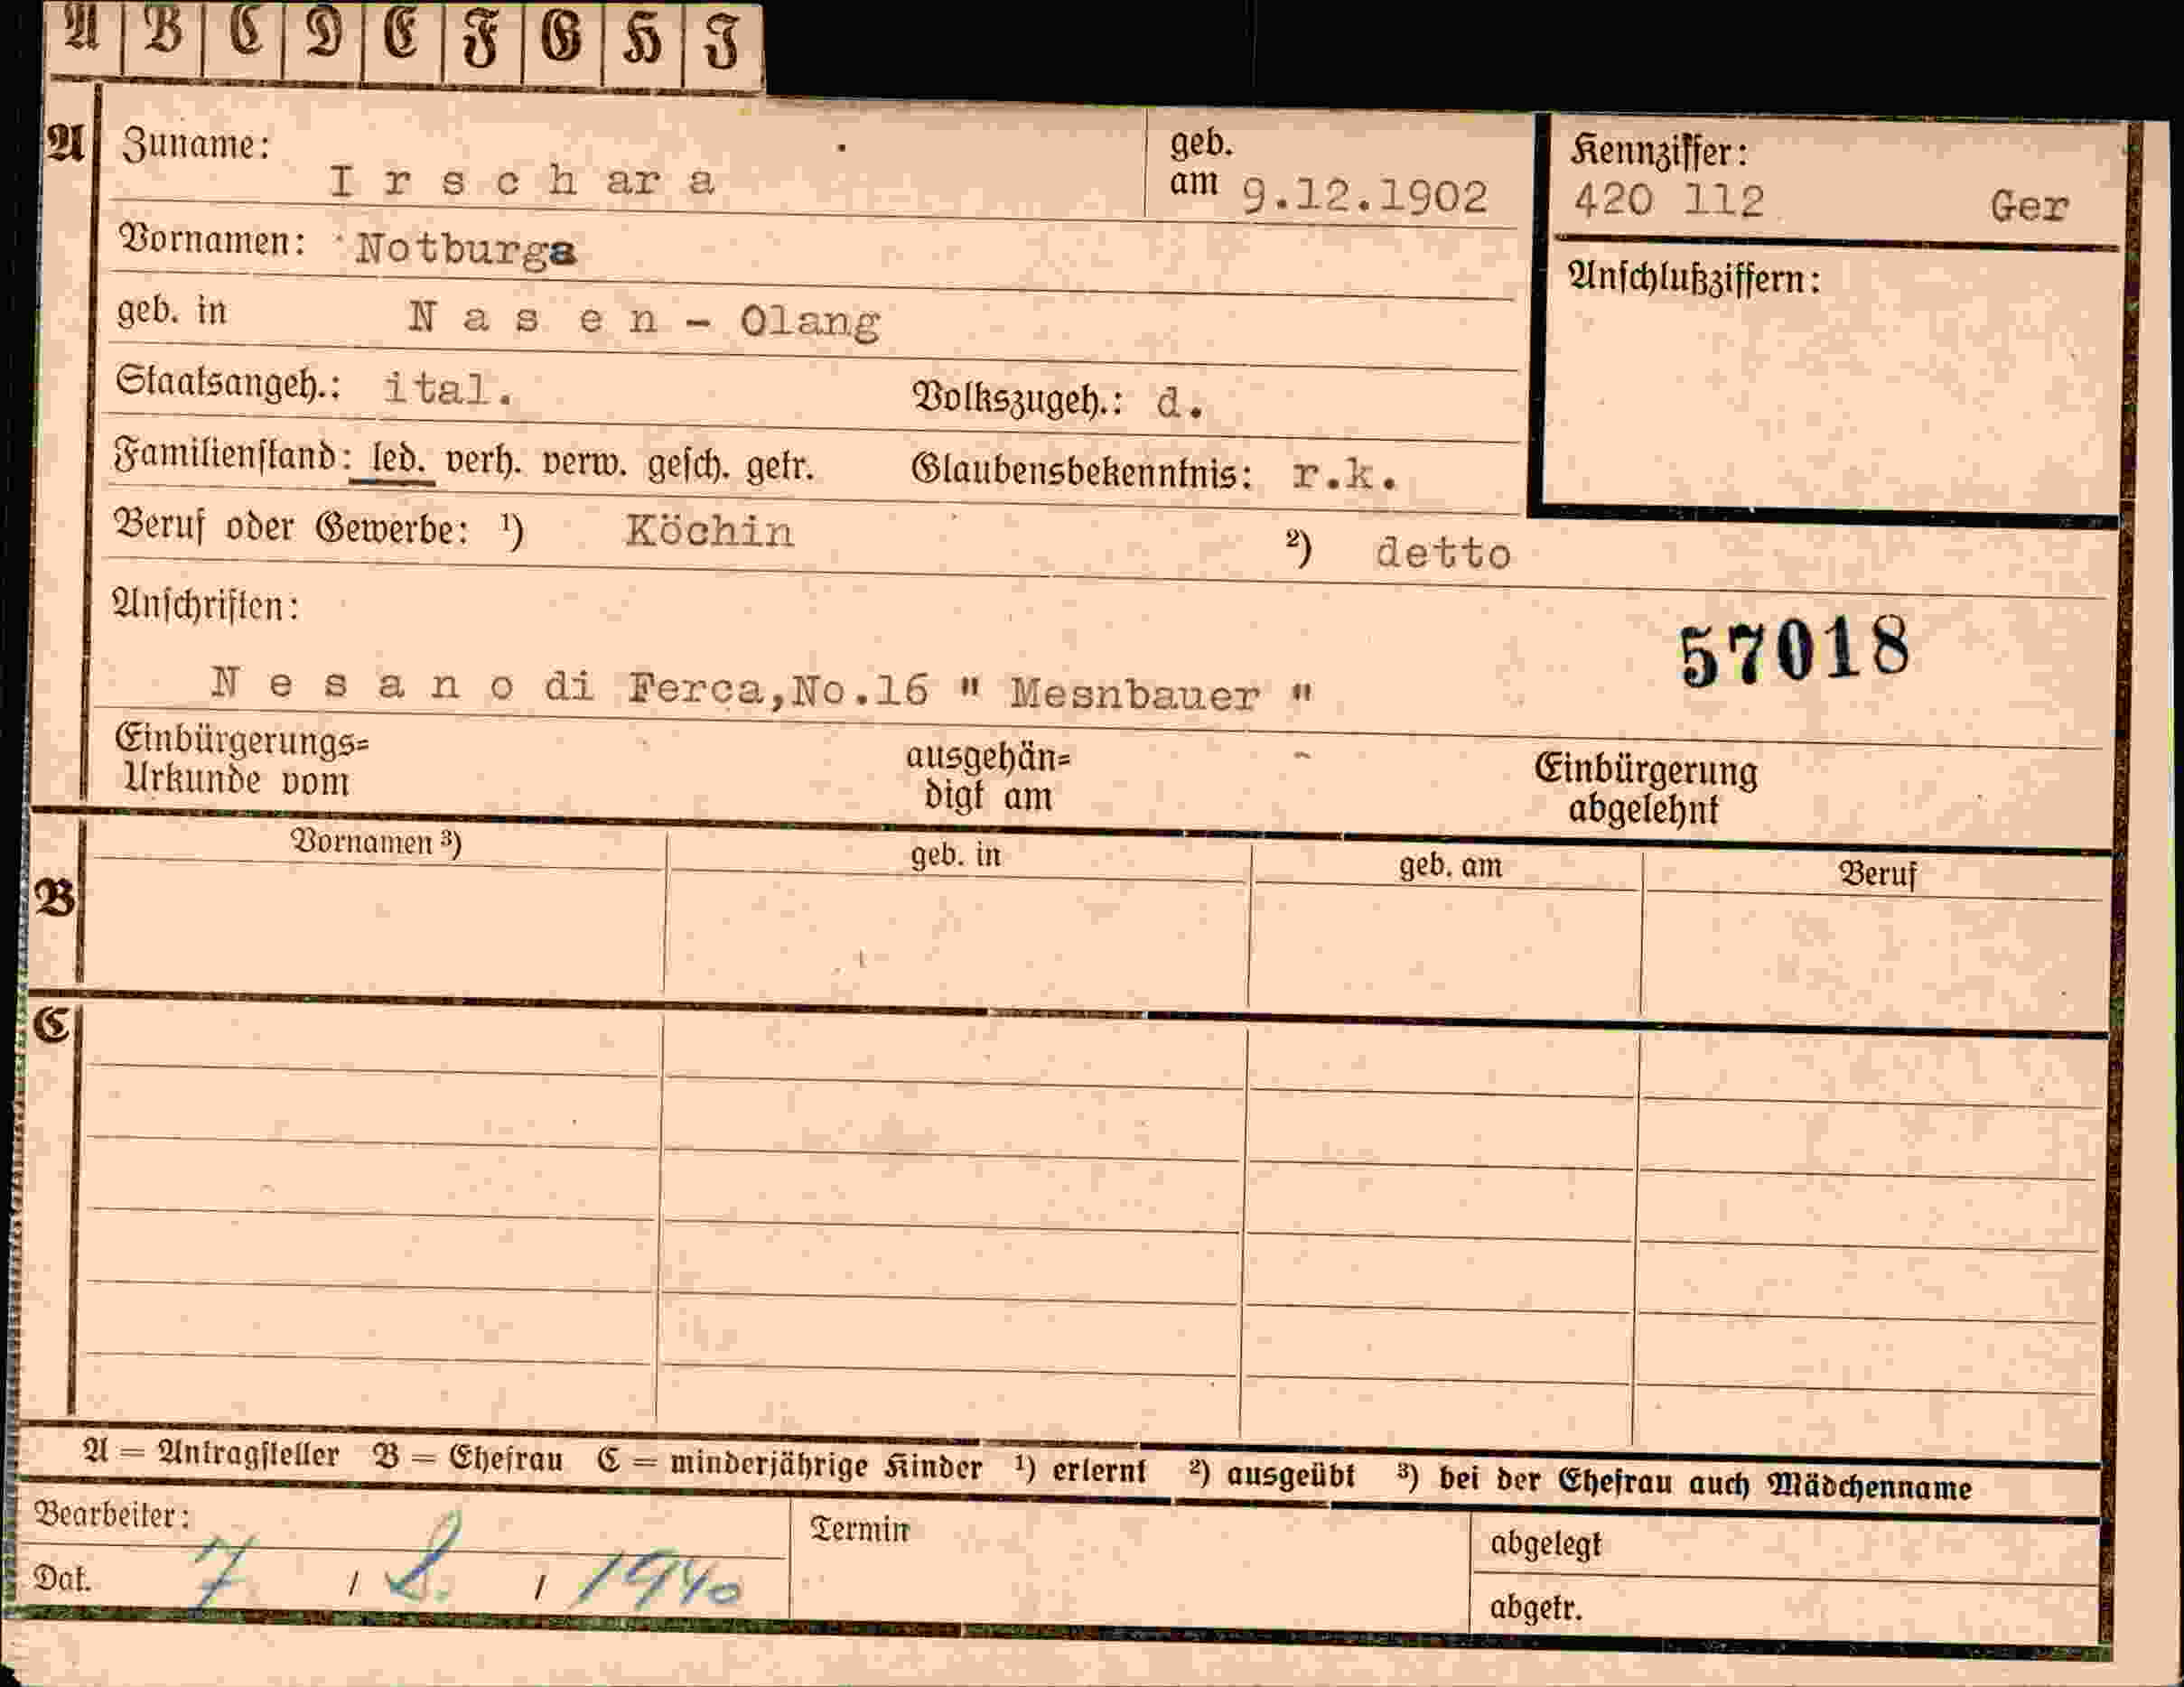 A B C D E F G H I
A
Zuname: I r s c h ar a
geb. am 9.12.1902
Kennziffer:
420 112 Ger
Vornamen: Notburga
Anschlußziffern:
geb. in N a s e n - Olang
Staatsangeh.: ital. Volkszugeh.: d.
Familienstand: led. verh. verw. gesch. getr. Glaubensbekenntnis: r.k.
Beruf oder Gewerbe: ¹) Köchin ²) detto
Anschriften:
57018
N e s a n o di Ferca,No.16 " Mesnbauer "
Einbürgerungs=
Urkunde vom
ausgehän=
digt am
Einbürgerung
abgelehnt
B
Vornamen ³) geb. in geb. am Beruf
C
A = Antragsteller B = Ehefrau C = minderjährige Kinder ¹) erlernt ²) ausgeübt ³) bei der Ehefrau auch Mädchenname
Bearbeiter:
Dat. 7 / 2. / 1940
Termin
abgelegt
abgetr.